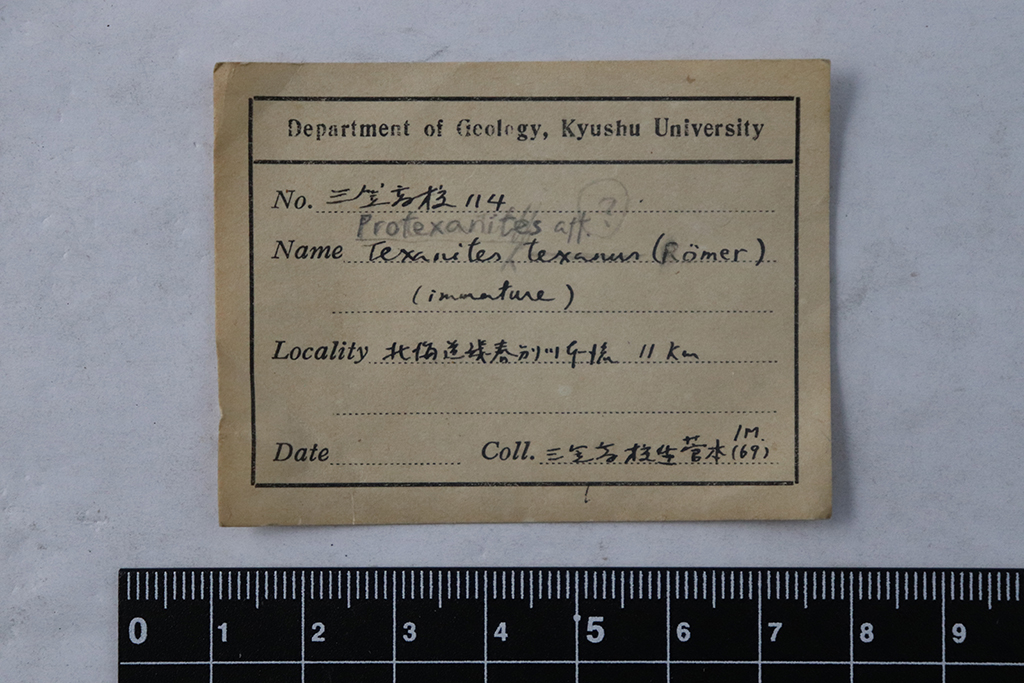 Department of Geology, Kyushu University
No. 三笠高校 114
Protexanites aff. ?
Name Texanites texanus (Römer)
(immature)
Locality 北海道 春別川 11 Km
Date Coll. 三笠高校生 菅本 (69)
0 1 2 3 4 5 6 7 8 9